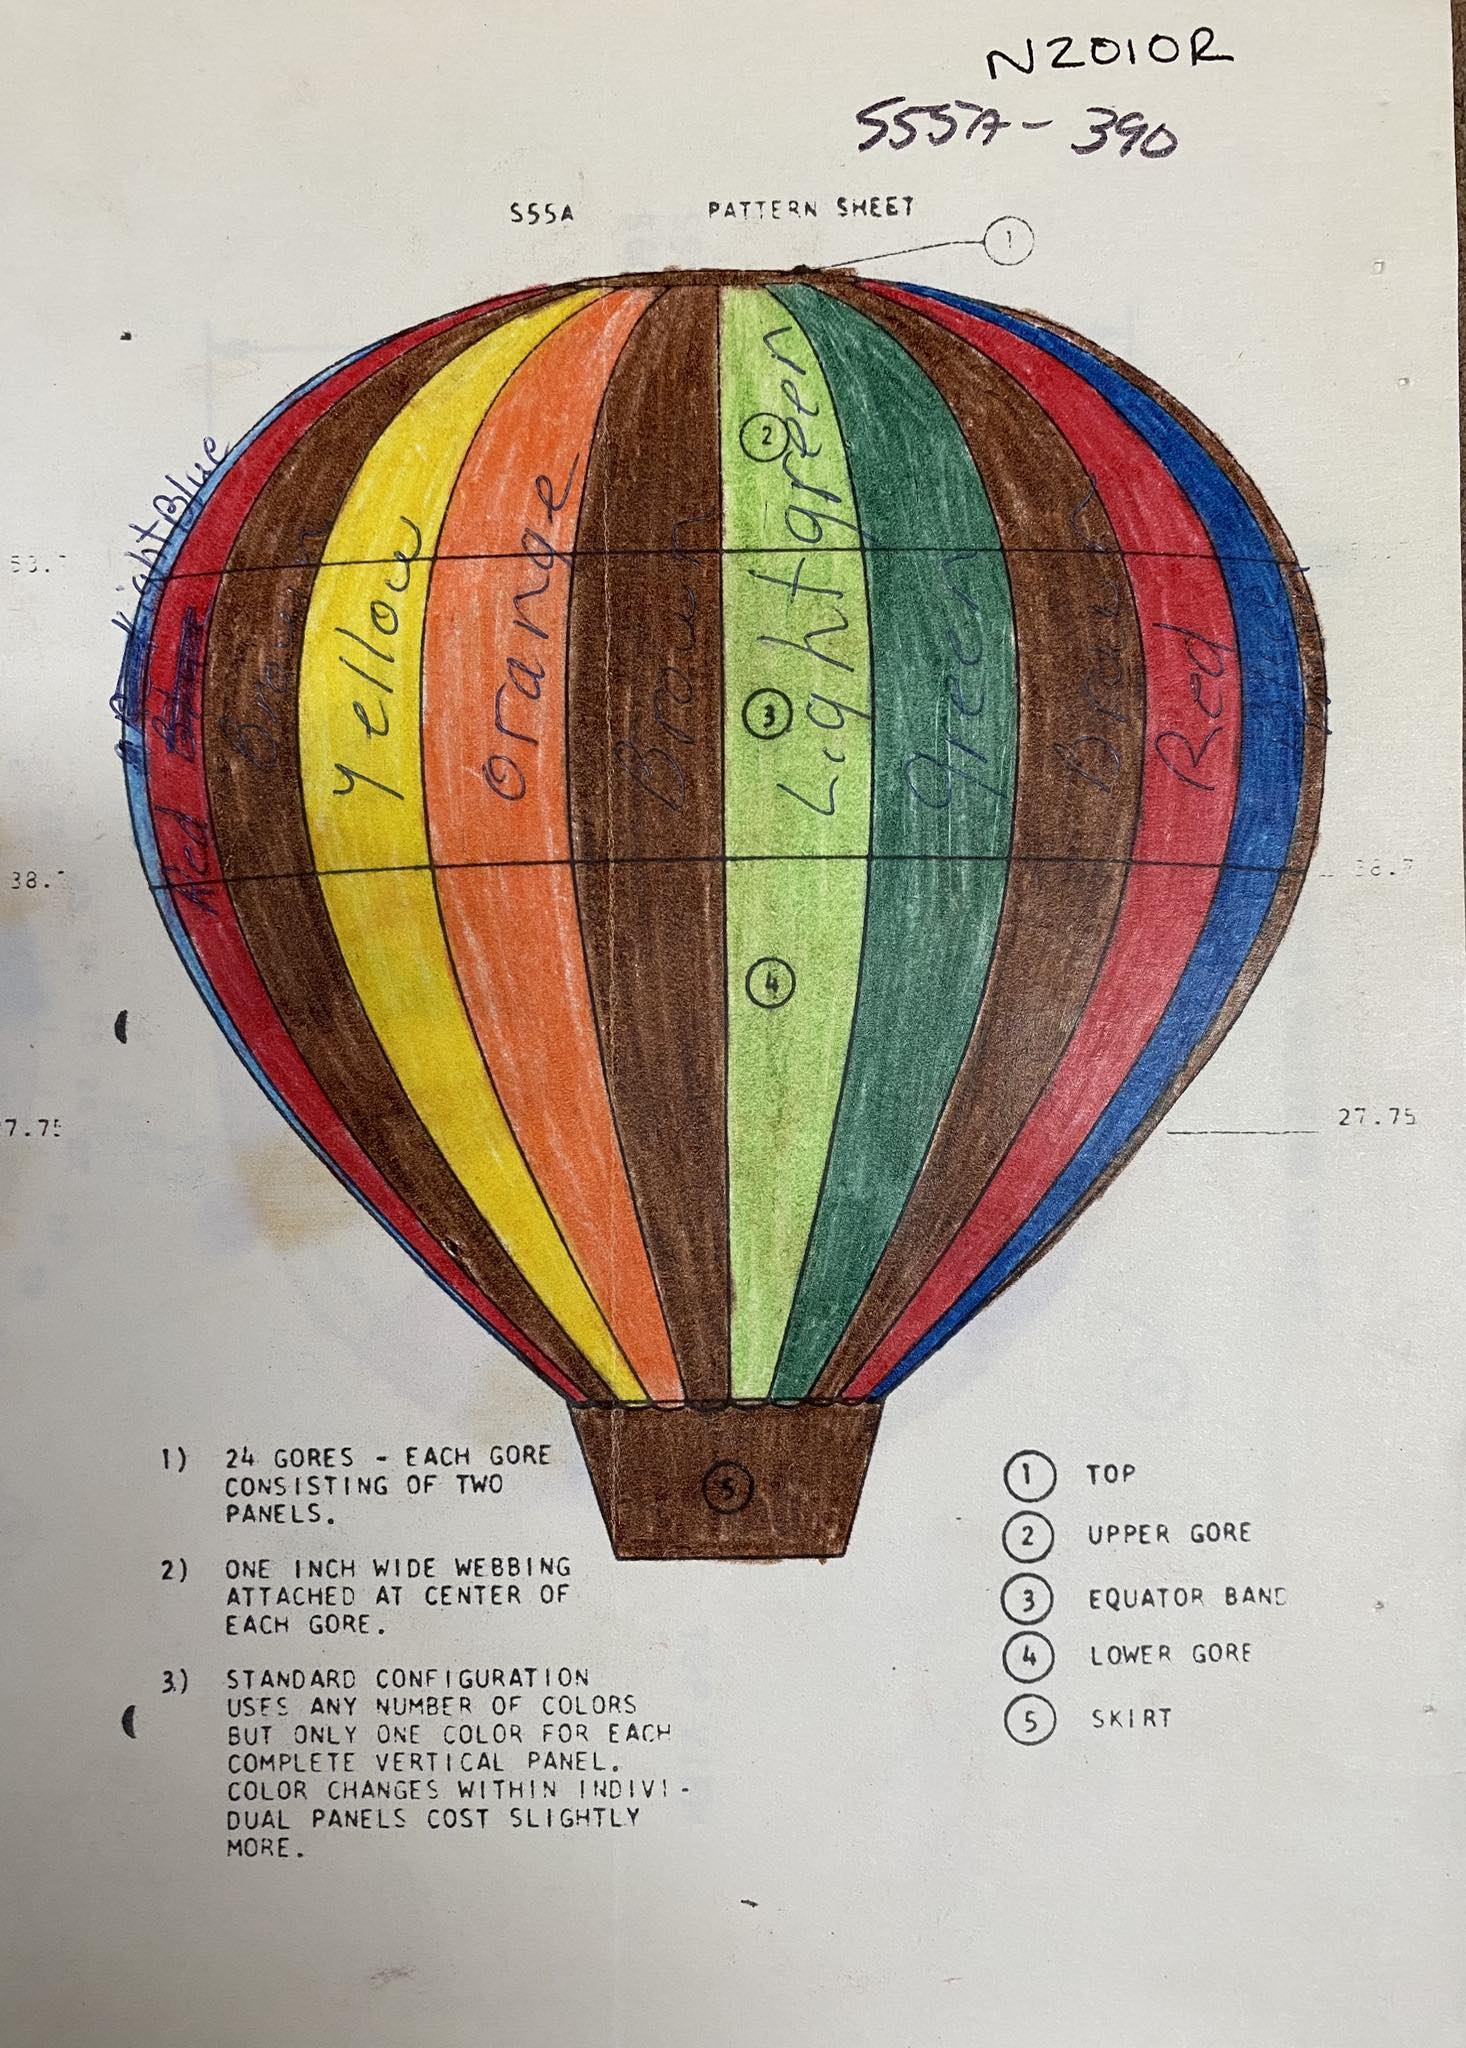 N2010R
S55A - 390
S55A PATTERN SHEET
1
Light Blue
Red
Brown
Yellow
Orange
Brown
Light green
green
Brown
Red
Blue
2
3
4
5
53.7
38.7
38.7
7.75
27.75
1) 24 GORES - EACH GORE
CONSISTING OF TWO
PANELS.
2) ONE INCH WIDE WEBBING
ATTACHED AT CENTER OF
EACH GORE.
3) STANDARD CONFIGURATION
USES ANY NUMBER OF COLORS
BUT ONLY ONE COLOR FOR EACH
COMPLETE VERTICAL PANEL.
COLOR CHANGES WITHIN INDIVI-
DUAL PANELS COST SLIGHTLY
MORE.
1 TOP
2 UPPER GORE
3 EQUATOR BAND
4 LOWER GORE
5 SKIRT